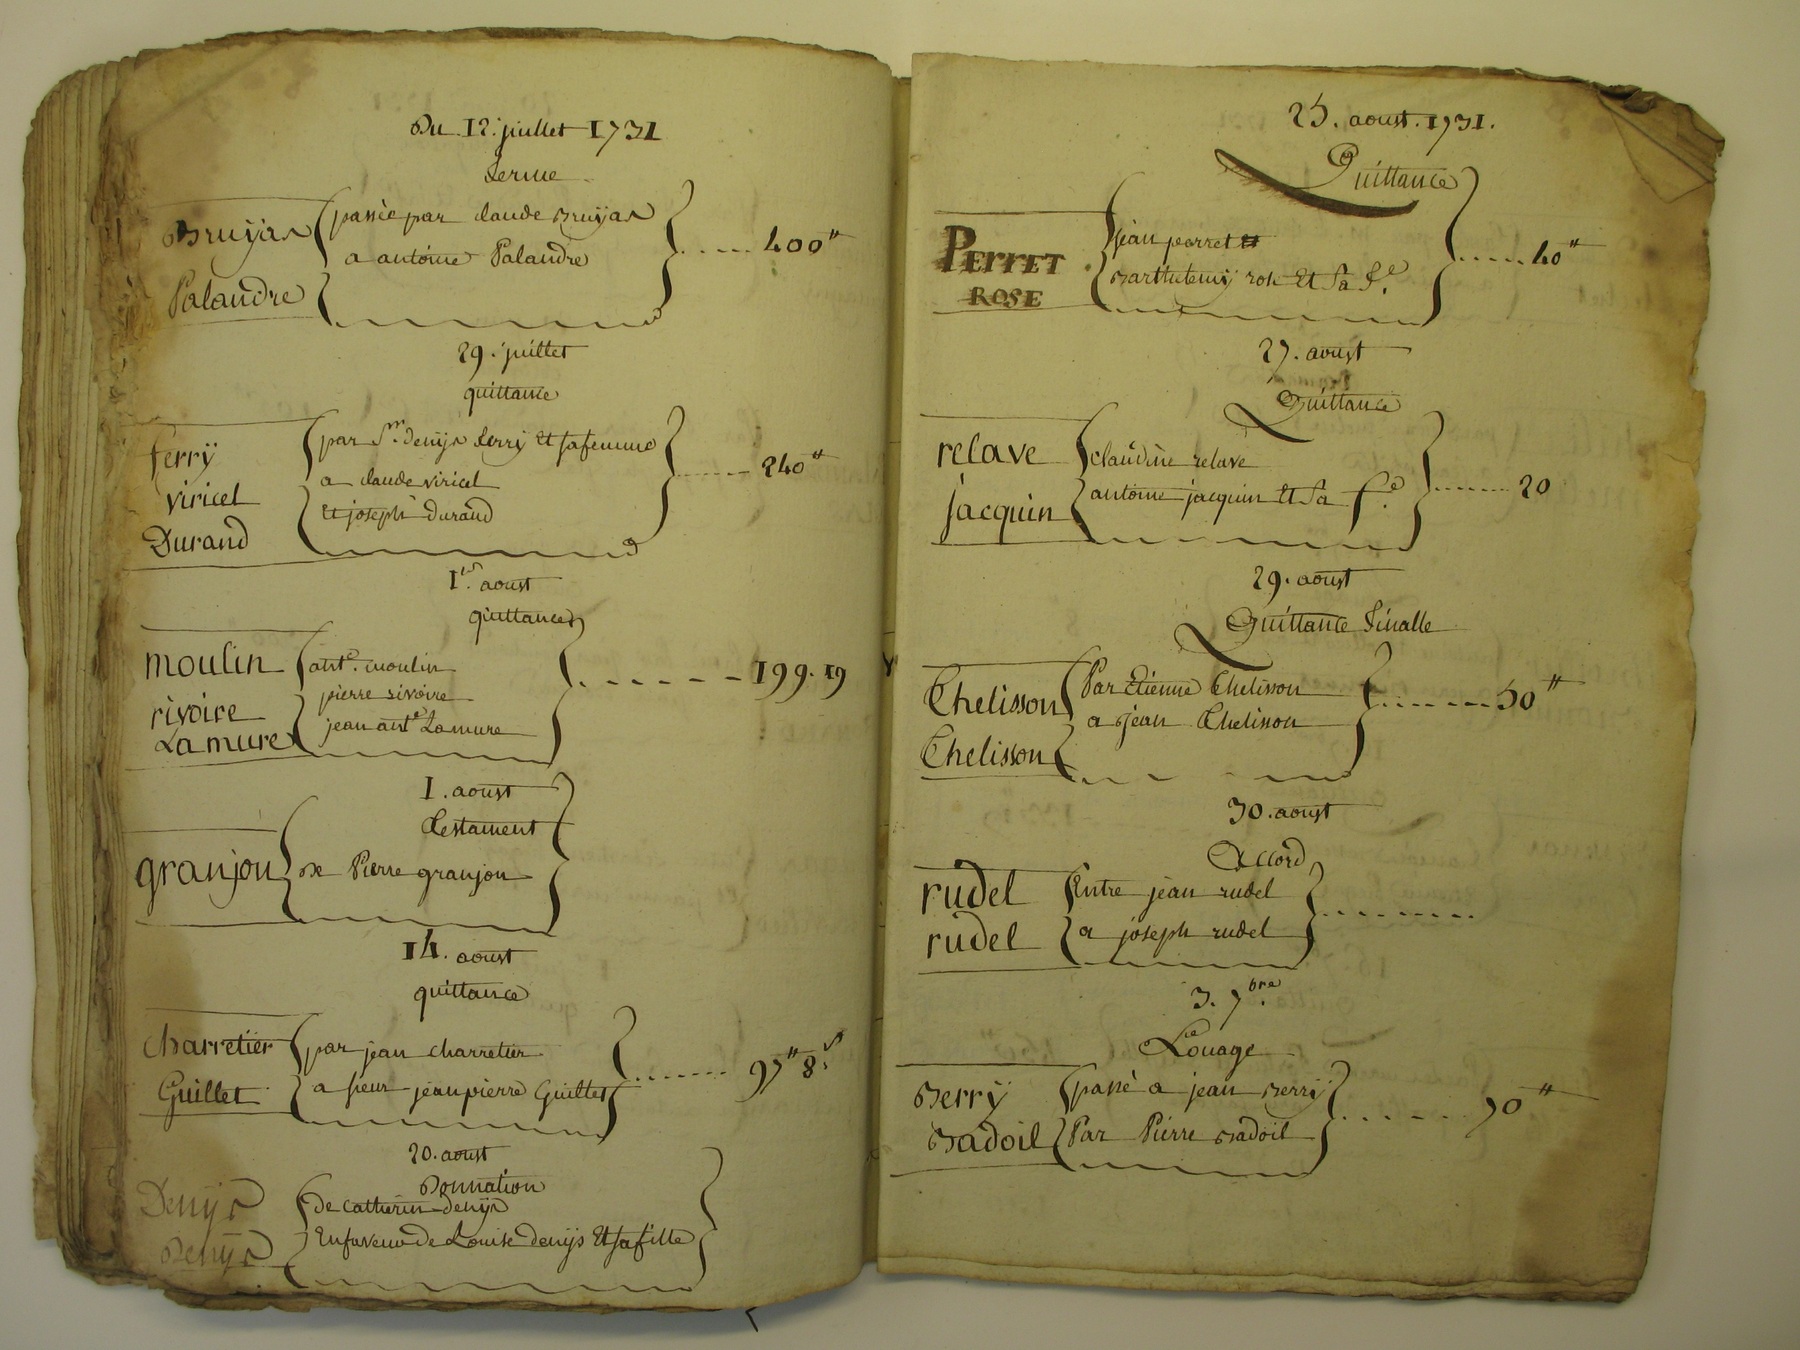 Du 12. juillet 1731
ferme
Bruyas passée par claude Bruyas
a antoine Palandre 400"
Palandre
29. juillet
quittance
ferrÿ par Sr. denÿs ferrÿ Et sa femme
viricel a claude viricel 240"
Et joseph durand
Durand
1er. aoust
quittance
moulin ante. moulin 199.19
rivoire pierre rivoire
Lamure jean ante Lamure
1. aoust
testament
granjon De Pierre granjon
14. aoust
quittance
Charretier par jean charretier
Guillet a sieur jean pierre Guillet 97" 8s
20. aoust
Donnation
Denÿs de catherin denÿs
Denÿs En faveur de Louise denÿs Et sa fille
25. aoust. 1731.
Quittance
PERRET jean perret
ROSE Barthelemy rose Et Sa fe. 40"
27. aoust
Quittance
relave claudine relave
jacquin antoine jacquin Et Sa fe. 20
29. aoust
Quittance finalle
Chelisson Par Etienne Chelisson
a jean Chelisson 50"
Chelisson
30. aoust
Accord
rudel Entre jean rudel
rudel a joseph rudel
3. 7bre.
Louage
Berrÿ passé a jean Berrÿ
Badoil Par Pierre Badoil 70"